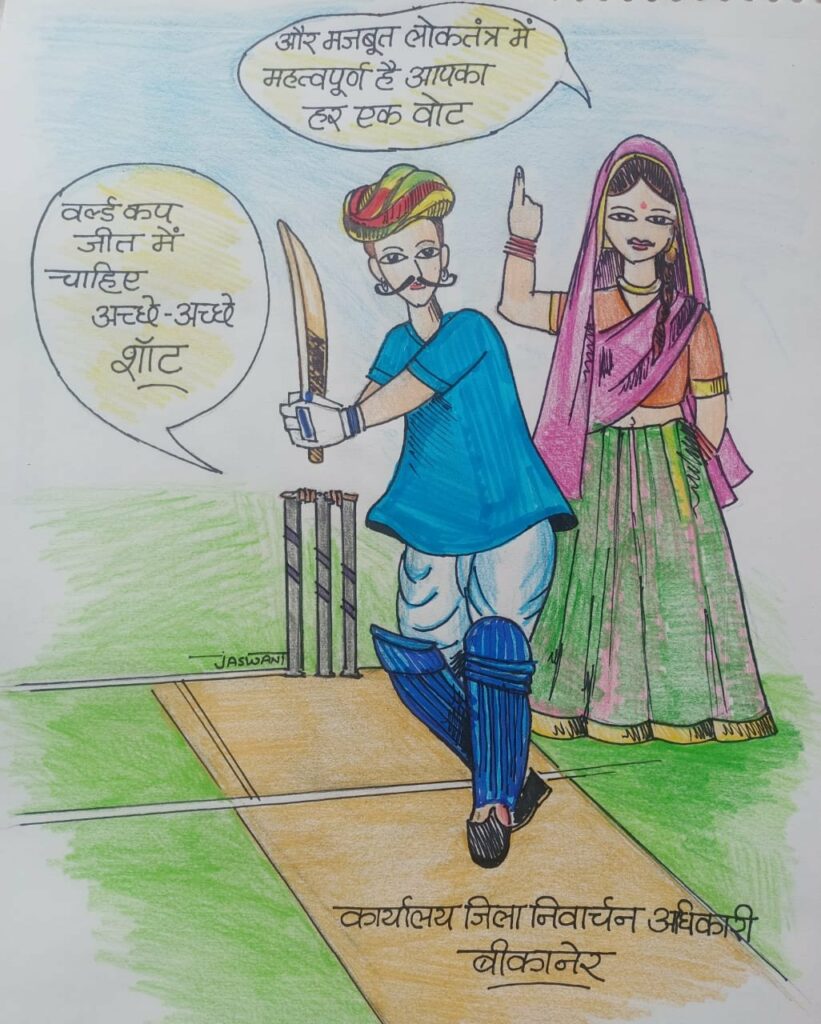 और मजबूत लोकतंत्र में
महत्वपूर्ण है आपका
हर एक वोट
वर्ल्ड कप
जीत में
चाहिए
अच्छे-अच्छे
शॉट
JASWANT
कार्यालय जिला निवार्चन अधिकारी
बीकानेर